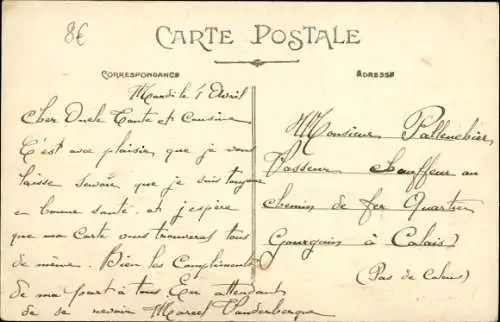 8€
CARTE POSTALE
CORRESPONDANCE
ADRESSE
Mardi le 1 Avril
Cher Oncle Tante et Cousine
C'est avec plaisir, que je vous
laisse savoir que je suis toujours
en bonne santé. et j'espère
que ma carte vous trouveras tous
de même. Bien les Compliments
de ma part à tous En attendant
de se revoir Marcel Vandenbergue
Monsieur
Vasseur chauffeur au
chemin de fer Quartier
Gourgain à Calais
(Pas de Calais)